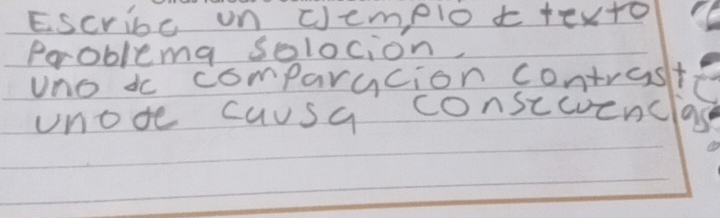 Escribe un ejemplo de texto
Problema Solocion.
uno de comparacion contrast
uno de causa consecuencias